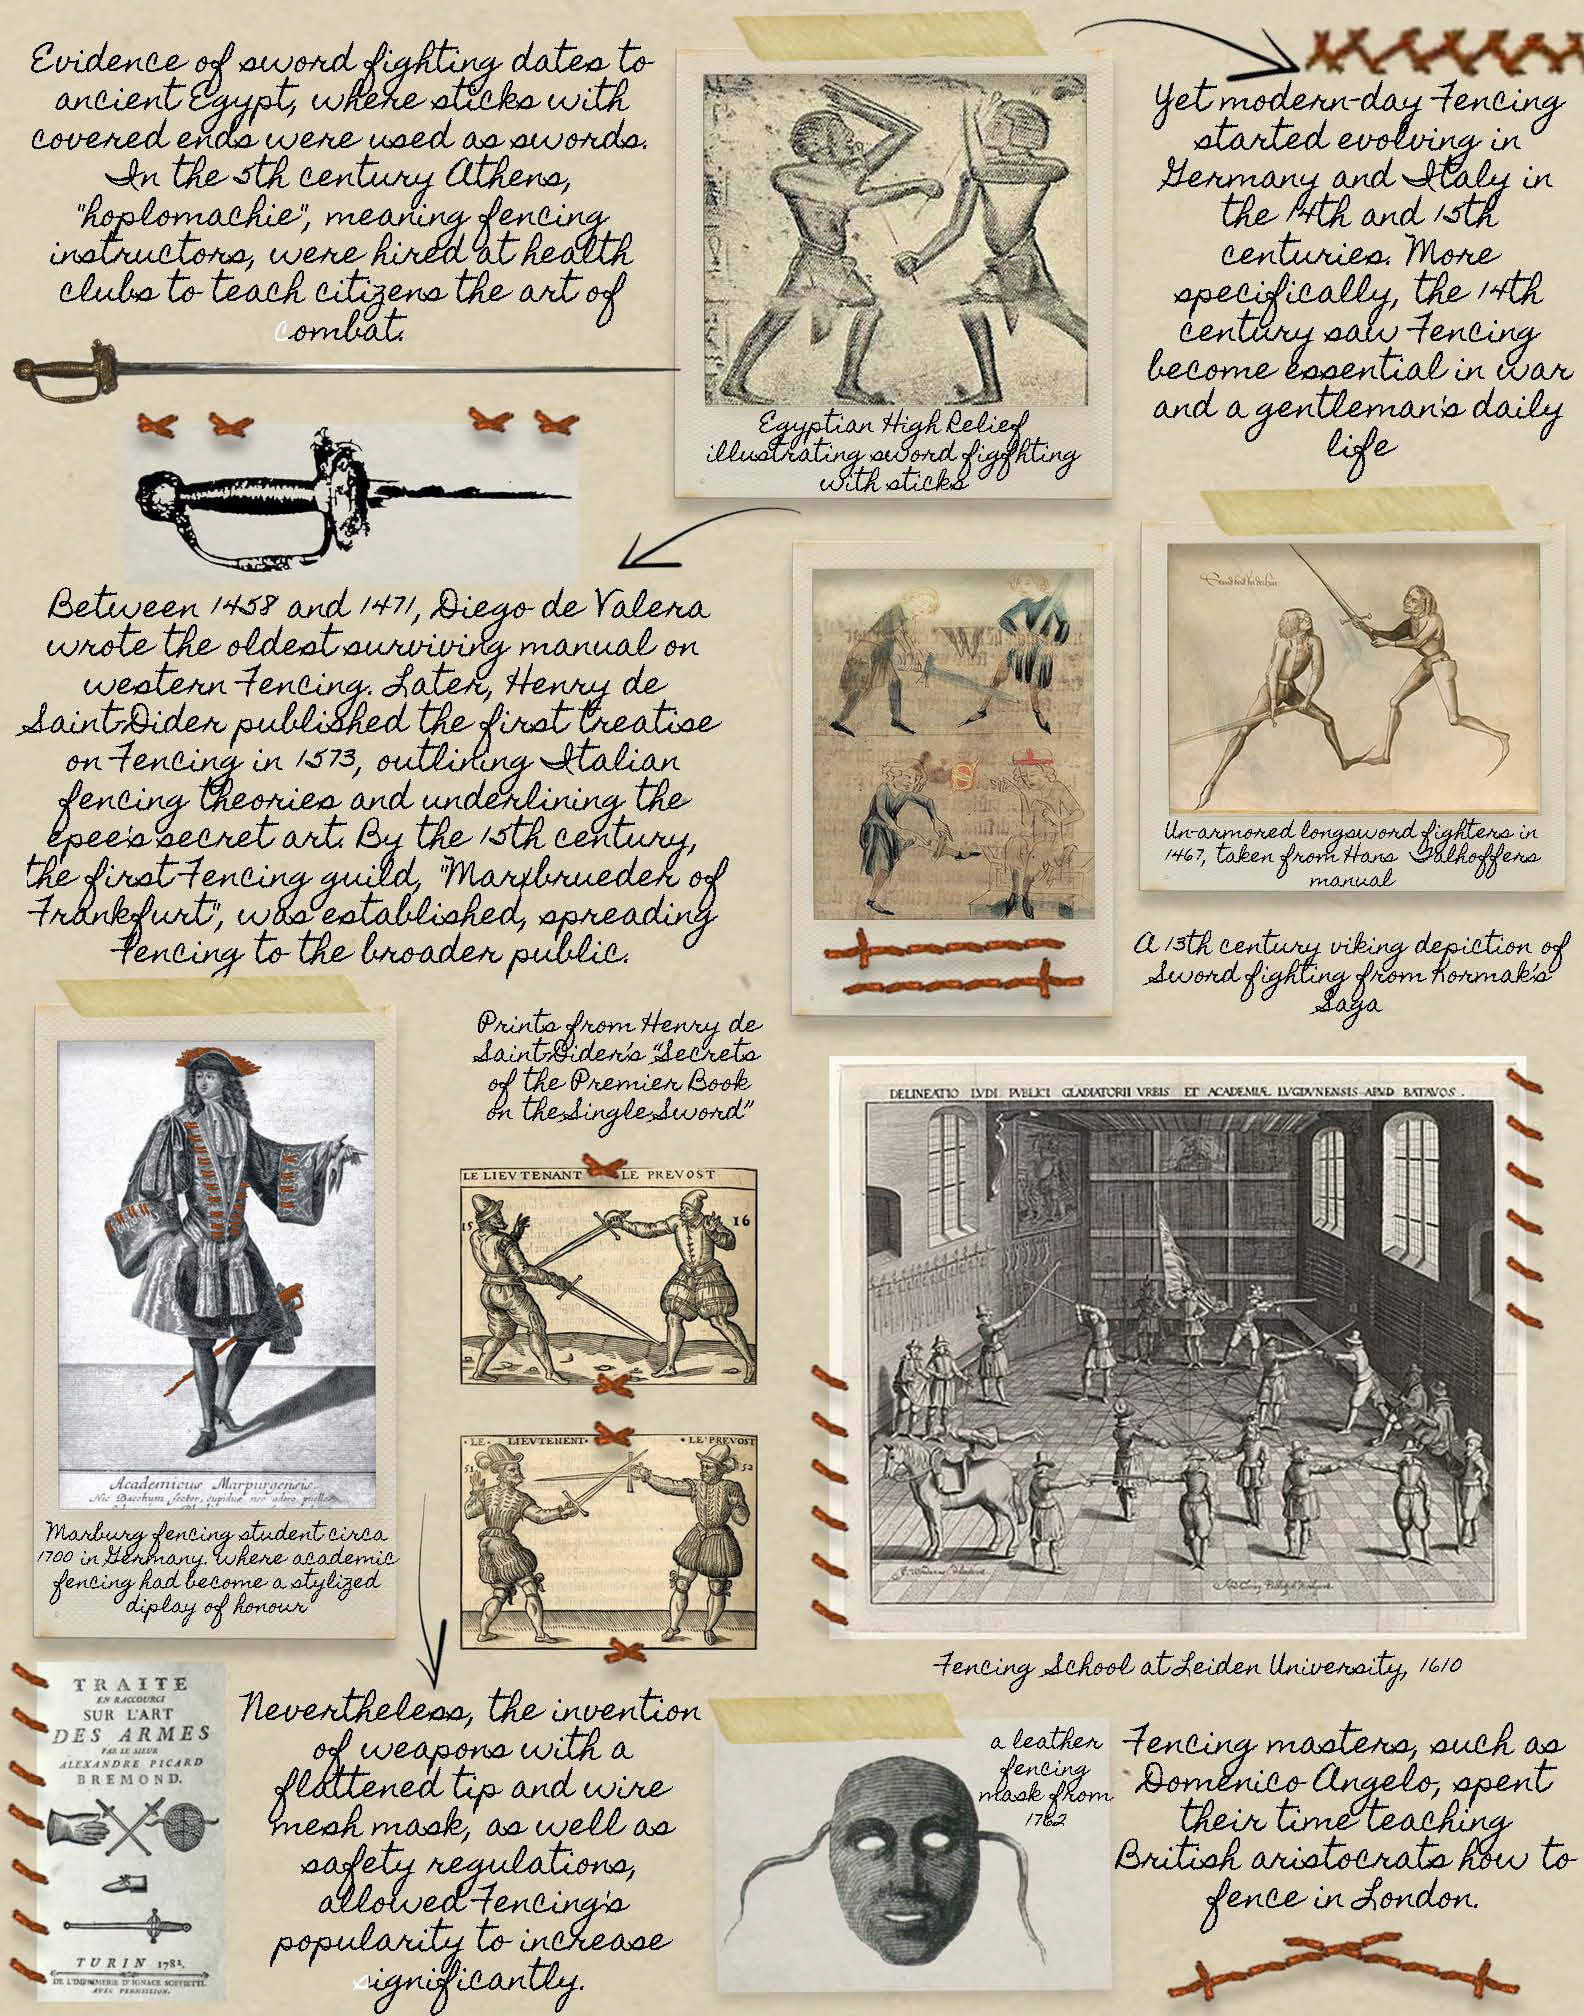 Evidence of sword fighting dates to
ancient Egypt, where sticks with
covered ends were used as swords.
In the 5th century Athens,
"hoplomachie", meaning fencing
instructors, were hired at health
clubs to teach citizens the art of
combat.
Egyptian High Relief
illustrating sword figfhting
with sticks
Yet modern-day Fencing
started evolving in
Germany and Italy in
the 14th and 15th
centuries. More
specifically, the 14th
century saw Fencing
become essential in war
and a gentleman's daily
life
Between 1458 and 1471, Diego de Valera
wrote the oldest surviving manual on
western Fencing. Later, Henry de
Saint-Dider published the first treatise
on Fencing in 1573, outlining Italian
fencing theories and underlining the
epee's secret art. By the 15th century,
the first Fencing guild, "Marxbrueder of
Frankfurt", was established, spreading
Fencing to the broader public.
Un-armored longsword fighters in
1467, taken from Hans Talhoffers
manual
A 13th century viking depiction of
Sword fighting from Kormak's
Saga
Prints from Henry de
Saint-Dider's "Secrets
of the Premier Book
on the Single Sword"
LE LIEVTENANT LE PREVOST
15 16
LE LIEVTENENT LE PREVOST
51 52
DELINEATIO LVDI PVBLICI GLADIATORII VRBIS ET ACADEMIÆ LVGDVNENSIS APVD BATAVOS.
Fencing School at Leiden University, 1610
Academicus Marpurgensis.
Nec Bacchum sector, cupidus nec adoro puellas
Marburg fencing student circa
1700 in Germany. where academic
fencing had become a stylized
diplay of honour
TRAITE
EN RACCOURCI
SUR L'ART
DES ARMES
PAR LE SIEUR
ALEXANDRE PICARD
BREMOND.
TURIN 1782,
DE L'IMPRIMERIE D'IGNACE SOFFIETTI.
AVEC PERMISSION.
Nevertheless, the invention
of weapons with a
flattened tip and wire
mesh mask, as well as
safety regulations,
allowed Fencing's
popularity to increase
significantly.
a leather
fencing
mask from
1762
Fencing masters, such as
Domenico Angelo, spent
their time teaching
British aristocrats how to
fence in London.